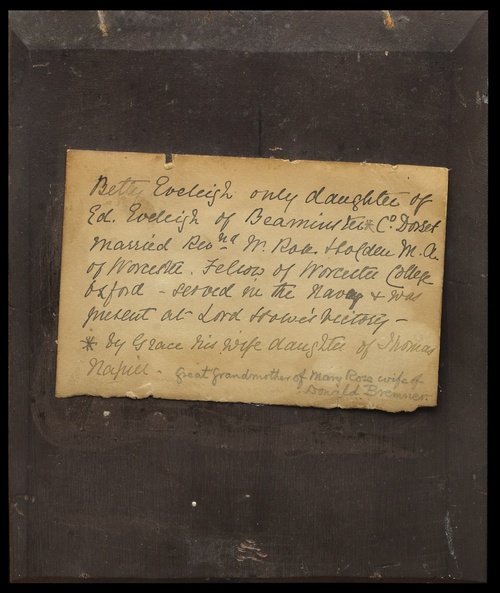 Betty Eveleigh only daughter of
Ed. Eveleigh of Beaminster* Co Dorset
married Revnd W. Rose Holden M.A.
of Worcester. Fellow of Worcester College
Oxford - served in the Navy & was
present at Lord Howe's Victory -
* by Grace his wife daughter of Thomas
Napier - great grandmother of Mary Rose wife of
Donald Bremner.